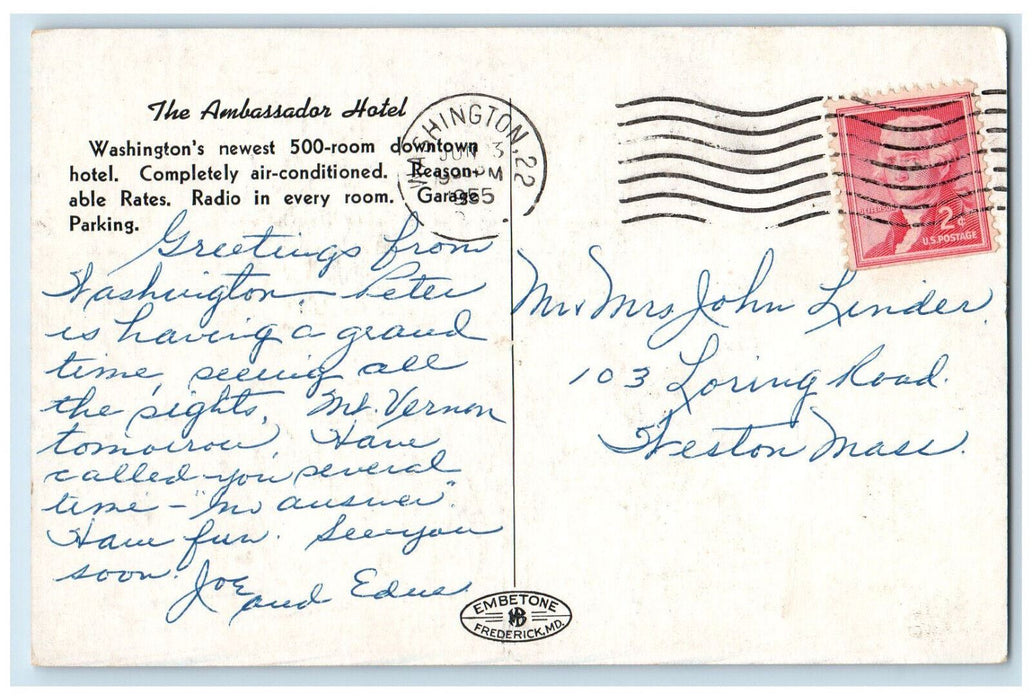 The Ambassador Hotel
Washington's newest 500-room downtown
hotel. Completely air-conditioned. Reason-
able Rates. Radio in every room. Garage
Parking.
WASHINGTON, 22
JUN 3
PM
1955
2¢
U.S. POSTAGE
Greetings from
Washington. Peter
is having a grand
time, seeing all
the sights. Mt. Vernon
tomorrow, Have
called you several
time - "no answer".
Have fun. See you
soon.
Joe and Edna
Mr & Mrs John Linder.
103 Loring Road.
Weston Mass.
EMBETONE
FREDERICK, MD.